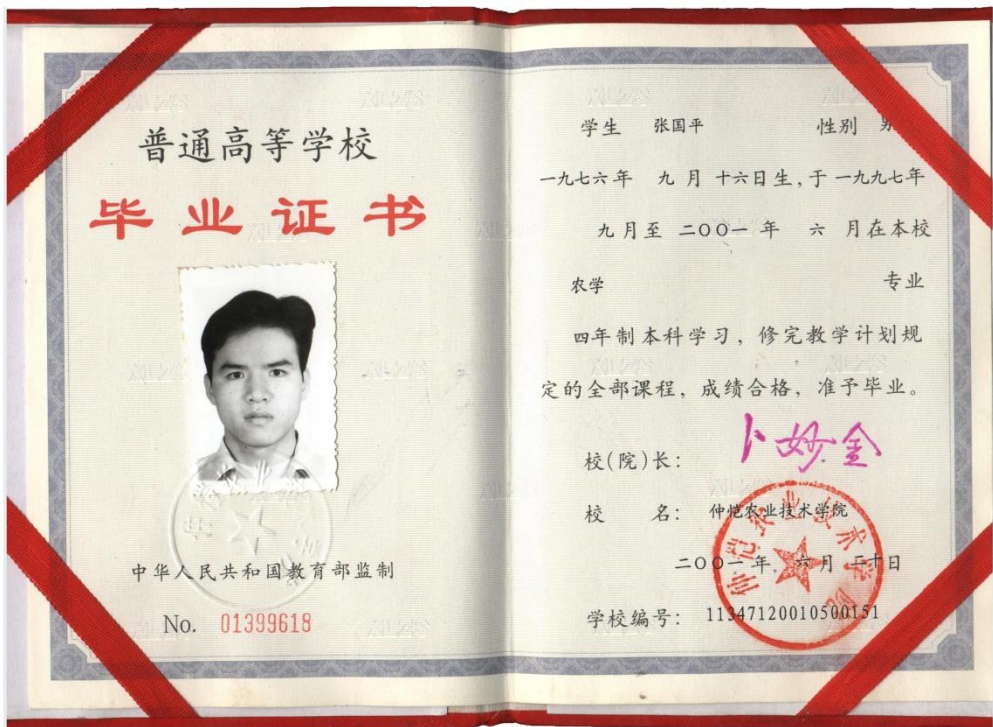 普通高等学校
毕业证书
中华人民共和国教育部监制
No. 01399618
学生 张国平 性别
一九七六年 九 月 十六日生,于 一九九七年
九月至 二〇〇一 年 六 月在本校
农学 专业
四年制本科学习，修完教学计划规
定的全部课程，成绩合格，准予毕业。
校(院)长： 卜妙金
校 名： 仲恺农业技术学院
二〇〇一年 六月 二十日
学校编号： 113471200105001​51
仲恺农业技术学院